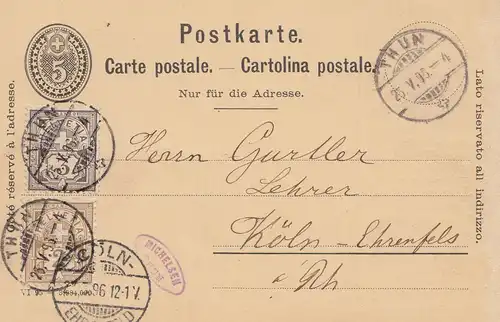 Postkarte.
Carte postale. — Cartolina postale.
Nur für die Adresse.
5
Côté réservé à l'adresse.
Lato riservato all'indirizzo.
THUN
THUN
THUN
Herrn Gurtler
Lehrer
Köln-Ehrenfels
a/Rh
MICHELSEN
CÖLN-
96 12-1 V.
VI 95